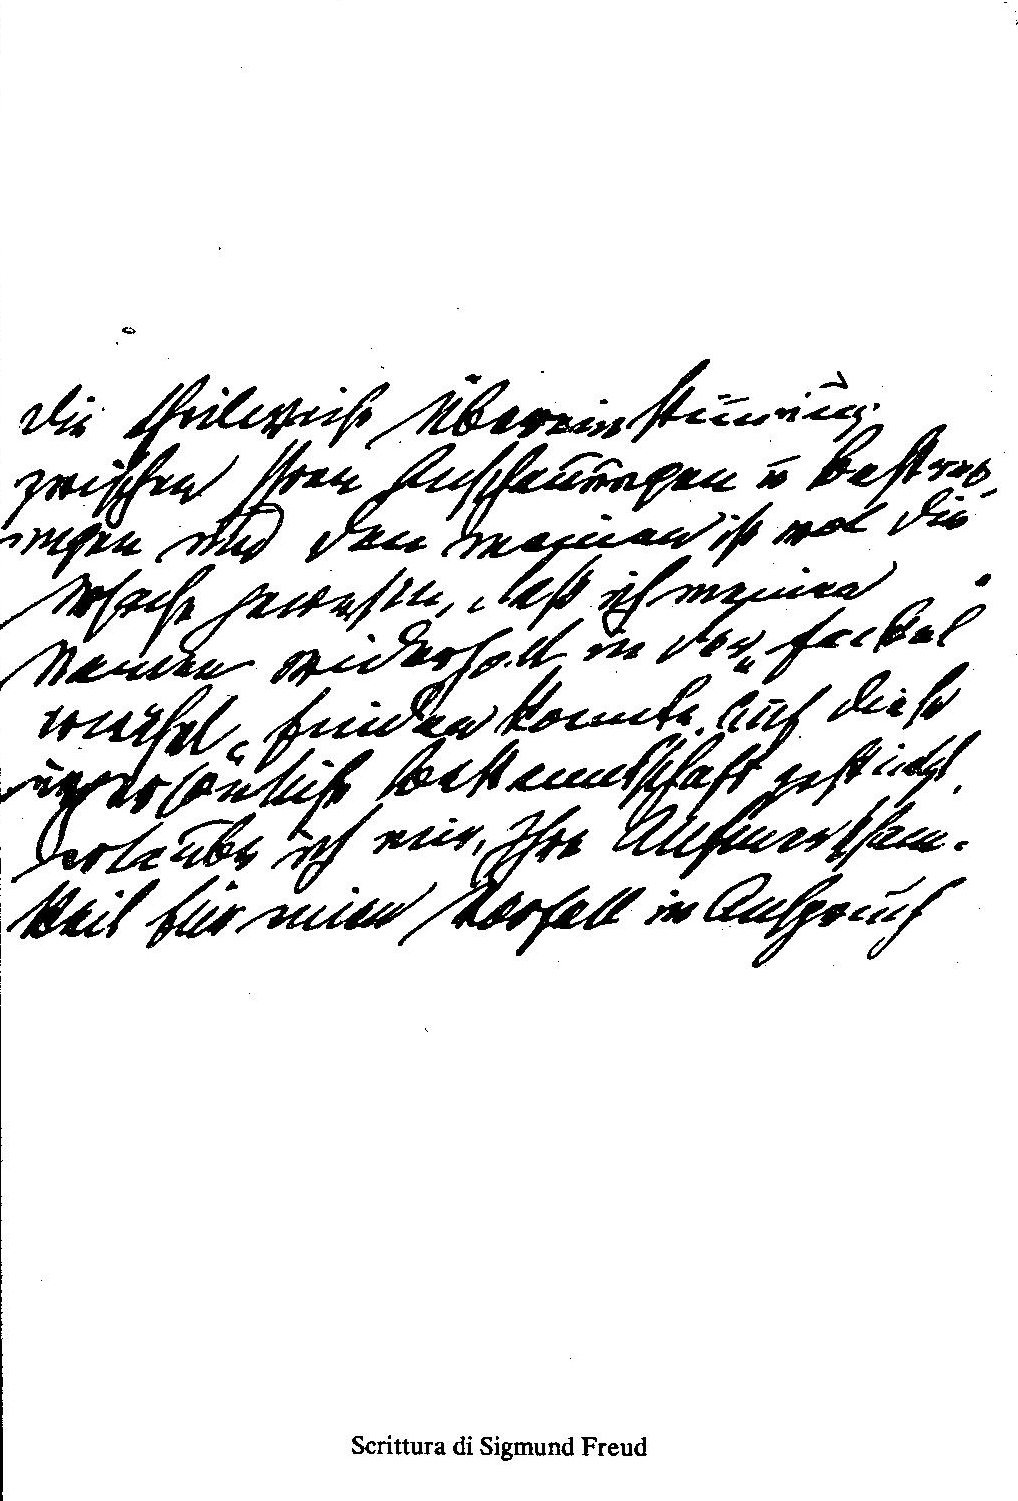 die theilweise Übereinstimmung
zwischen Ihren Anschauungen u Bestreb-
ungen und den meinen ist wol die
Ursache gewesen, daß ich meinen
Namen widerholt in der „Fackel
erwähnt“ finden konnte. Auf diese
unpersönliche Bekanntschaft gestützt,
erlaube ich mir, Ihre Aufmerksam-
keit für einen Vorfall in Anspruch
Scrittura di Sigmund Freud